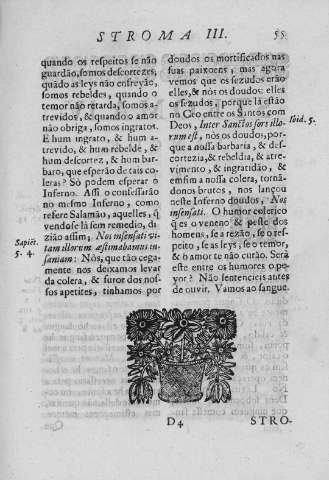 STROMA III.
55
quando os respeitos se não
guardão, somos descortezes,
quãdo as leys não enfreyão,
somos rebeldes, quando o
temor não retarda, somos a-
trevidos, & quando o amor
não obriga, somos ingratos.
E hum ingrato, & hum a-
trevido, & hum rebelde, &
hum descortez, & hum bar-
baro, que esperão de tais co-
leras? Só podem esperar o
Inferno. Assi o confessarão
no mesmo Inferno, como
refere Salamão, aquelles, q̃
vendose là sem remedio, di-
zião assim, Nos insensati vi-
tam illorum æstimabamus in-
saniam: Nòs, que tão cega-
mente nos deixamos levar
da colera, & furor dos nos-
sos apetites, tinhamos por
Sapiẽt.
5. 4.
doudos os mortificados nas
suas paixoens, mas agora
vemos que os sezudos erão
elles, & nós os doudos: elles
os sezudos, porque lá estão
no Ceo entre os Santos com
Deos, Inter Sanctos sors illo-
rum est, nòs os doudos, por-
que a nossa barbaria, & des-
cortezia, & rebeldia, & atre-
vimento, & ingratidão, &
emfim a nossa colera, tornã-
donos brutos, nos lançou
neste Inferno doudos, Nos
insensati. O humor colerico
q̃ es o veneno & peste dos
homens, se a rezão, se o res-
peito, se as leys, se o temor,
& o amor te não curão. Será
este entre os humores o pe-
yor? Não sentenceis antes
de ouvir. Vamos ao sangue.
Ibid. 5.
D4
STRO-